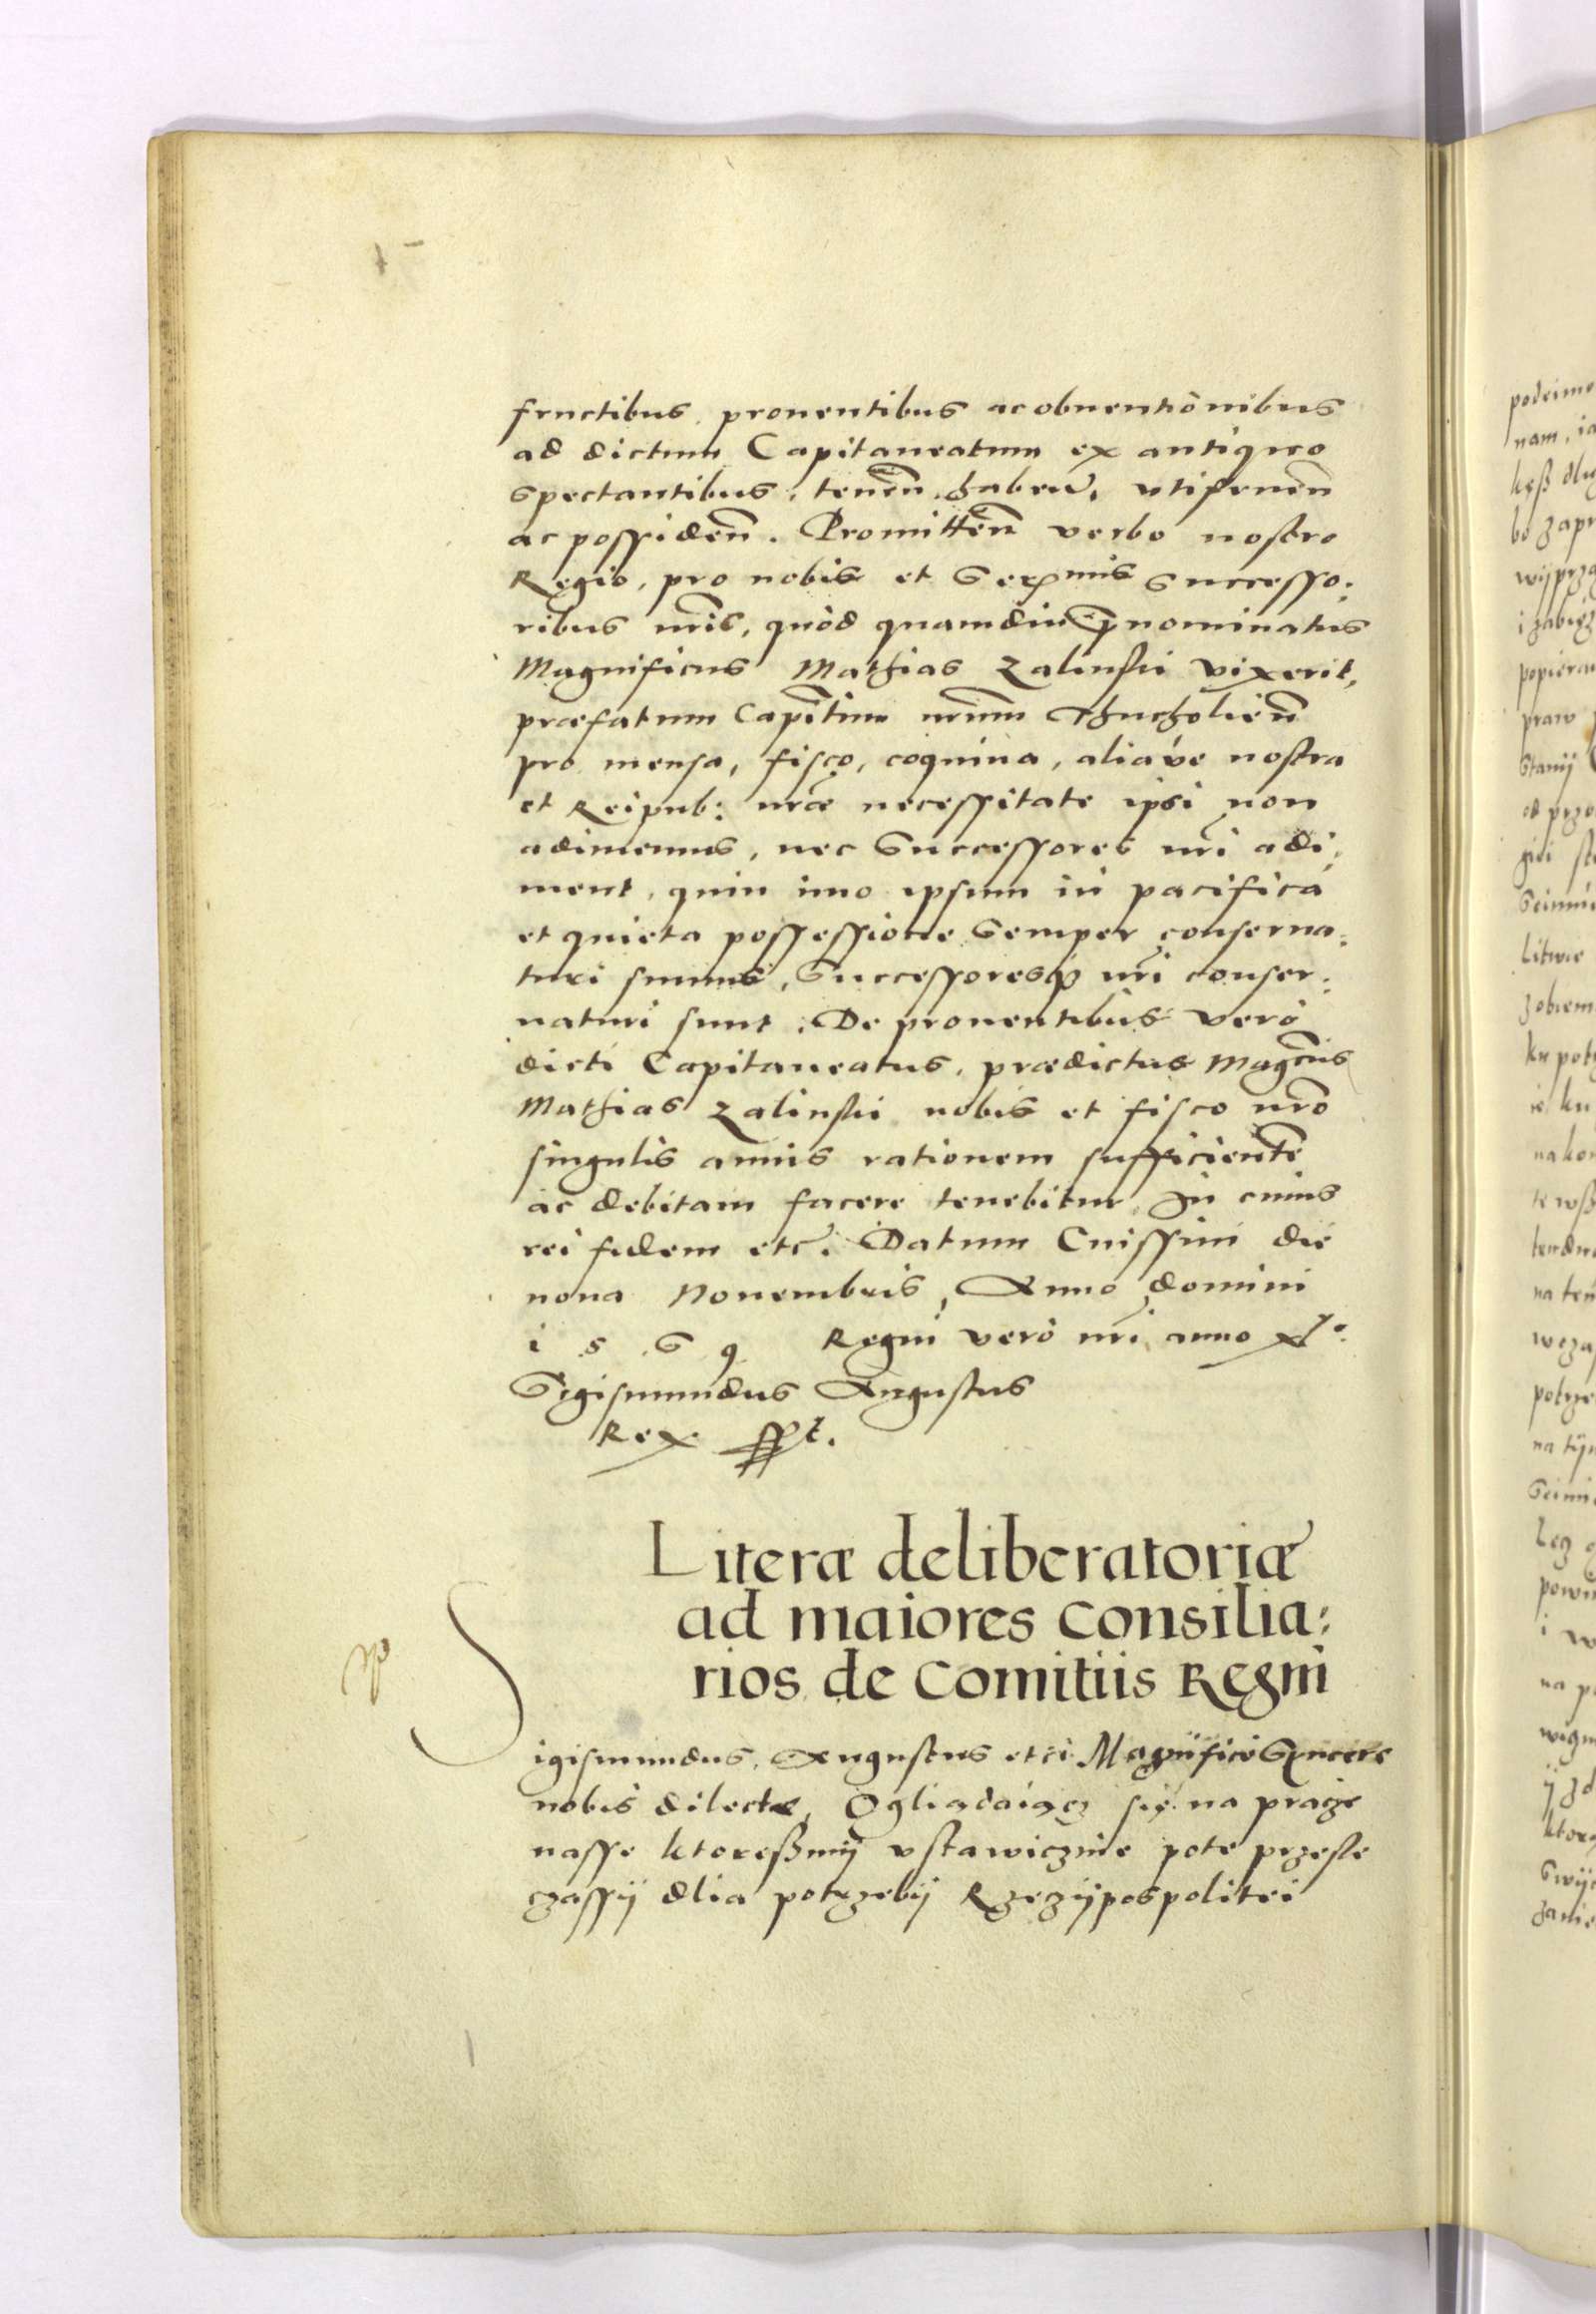 fructibus, prouentibus ac obuentiònibus
ad dictum Capitaneatum ex antiquo
spectantibus, tenen̄, haben̄, vtifruen̄
ac possiden̄. Promitten̄ verbo nostro
Regio, pro nobis et Serᵐⁱˢ Successo:
ribus nr̄is, quòd quamdiu p̄nominatus
Magnificus Mathias Zalinskii vixerit,
præfatum Capn̄tum nr̄um Thucholien̄
pro mensa, fisco, coquina, aliaúe nostra
et Reipub: nr̄æ necessitate ipsi non
adimemus, nec Successores nr̄i adi:
ment, quin imo ipsum in pacifica
et quieta possessione semper conserua:
turi sumus, Successoresq̨ nr̄i conser:
uaturi sunt. De prouentibus verò
dicti Capitaneatus, prædictus Magcūs
Mathias Zalinskii nobis et fisco nr̄o
singulis annis rationem sufficientē
ac debitam facere tenebitur. In cuius
rei fidem etc. Datum Cnissini die
nona Nouembris, Anno domini
1 5 6 9 Regni verò nr̄i anno xl°.
Sigismundus Augustus
Rex sst.
Literæ deliberatoriæ
ad maiores consilia:
rios de comitiis Regni
Sigismundus Augustus etc: Magnifice Syncere
nobis dilecte, Ogliądaiącz się na pracze
nasse ktoreßmÿ vstawicznie pote przesle
czassÿ dlia potrzebÿ Rzeczÿpospolitei
podeimo
nam, ia
bo zapr
popiera
praw
Litwie
zobiem
ktorą